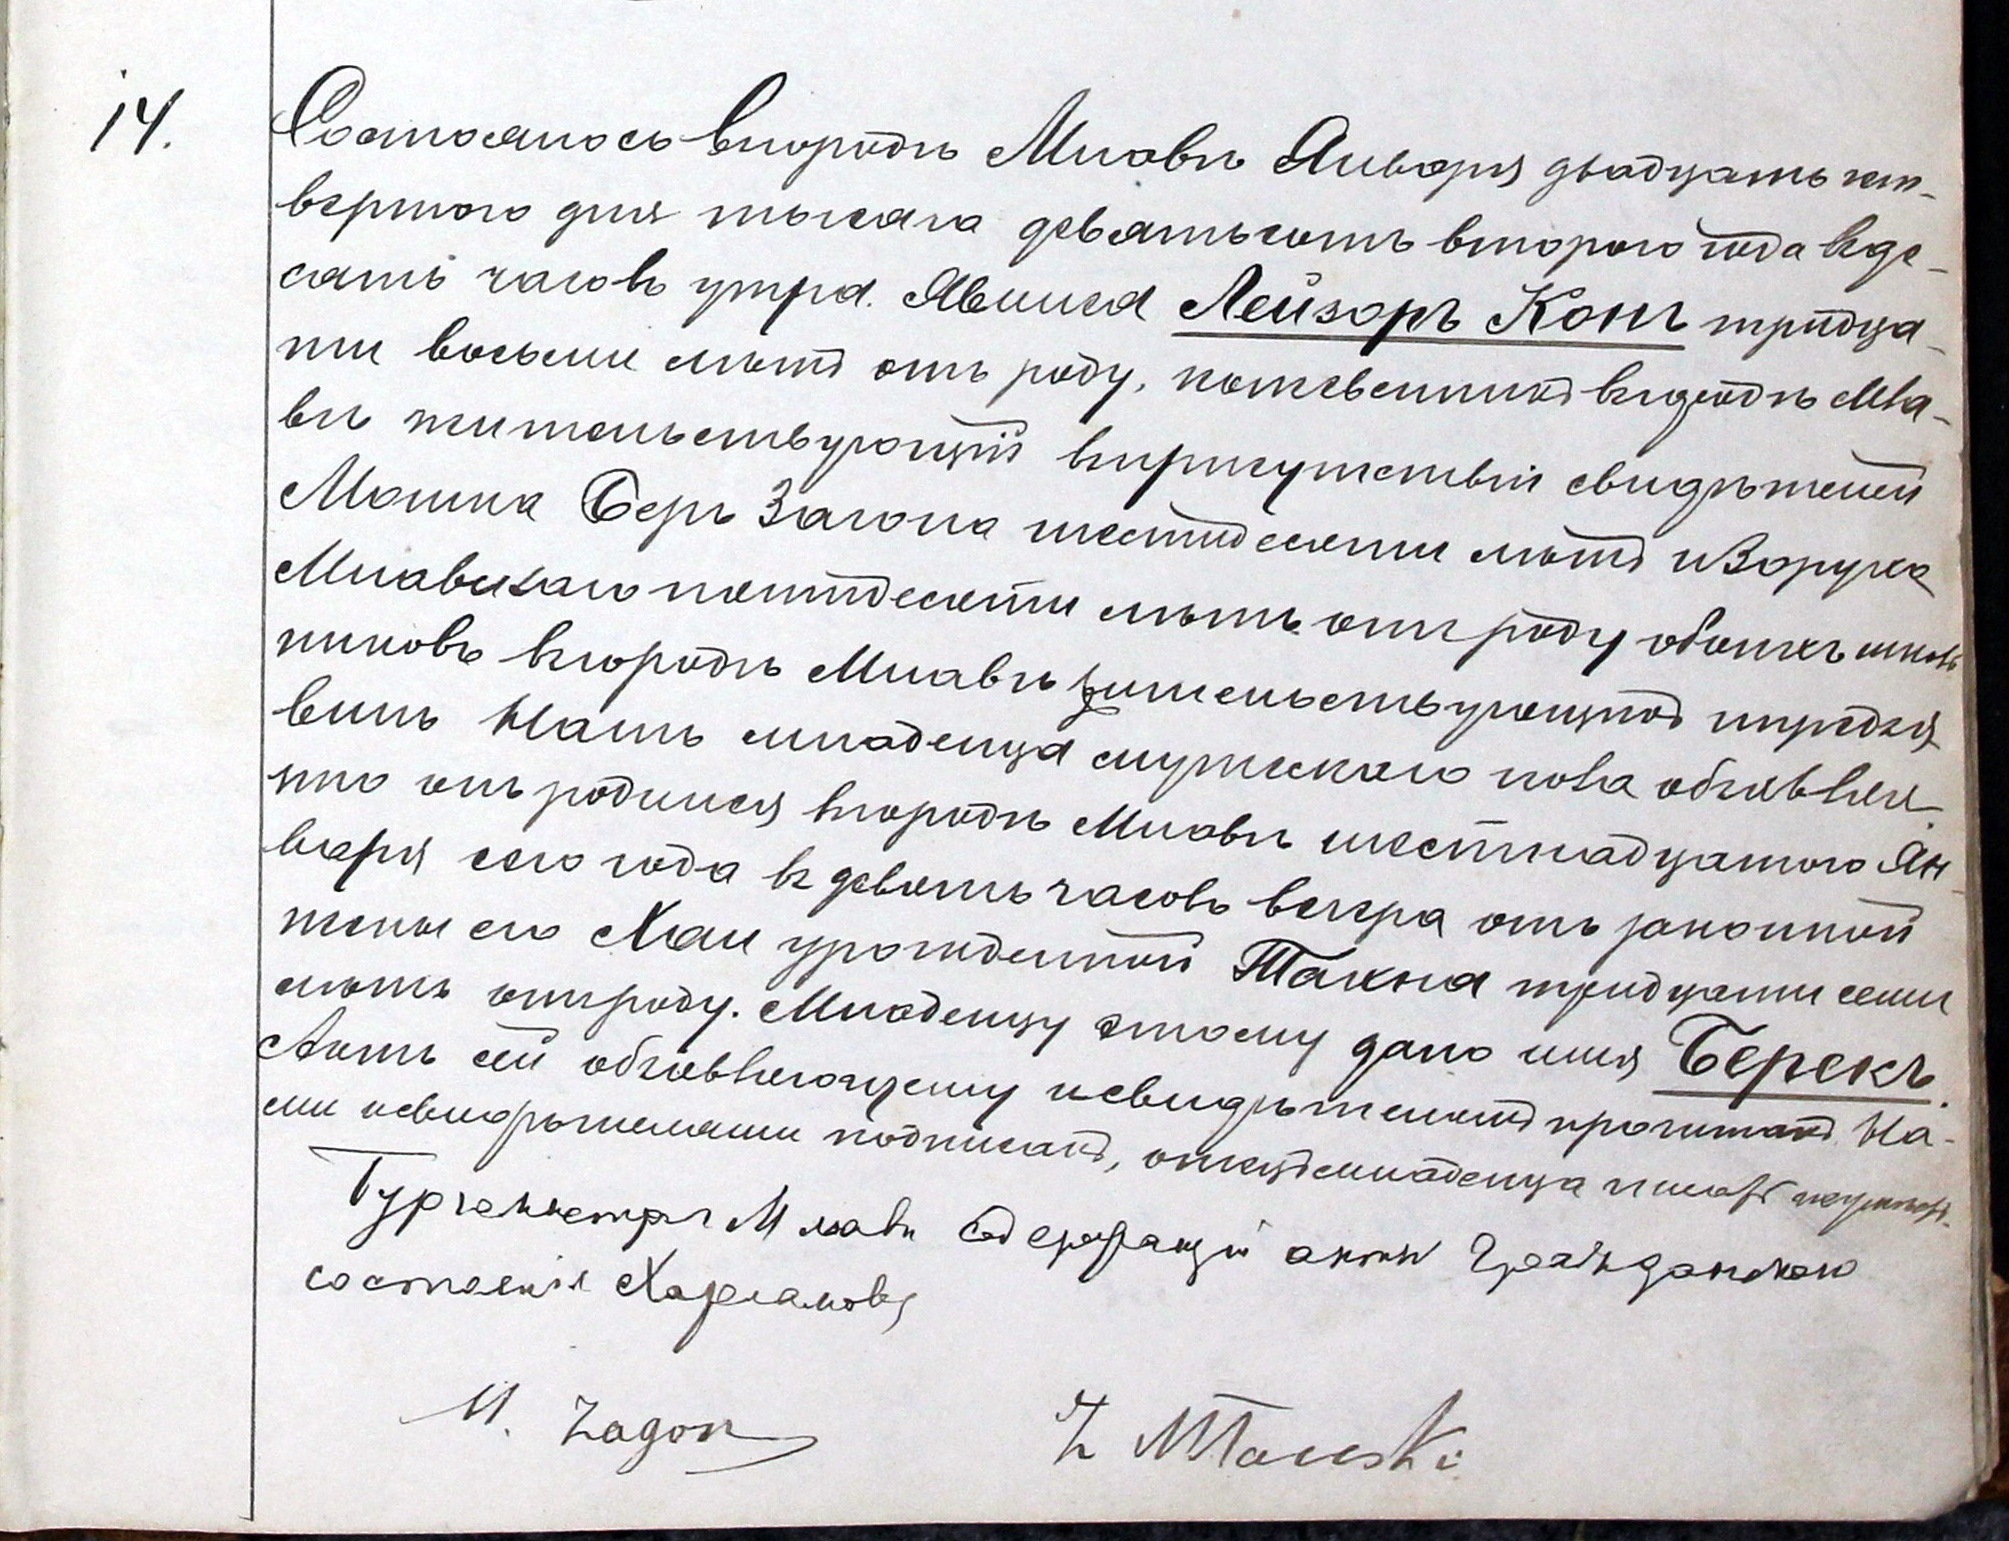 14.
Состоялось в городѣ Млавѣ Января двадцать чет-
вертого дня тысяча девятьсотъ второго года в де-
сять часовъ утра. Явился Лейзоръ Конъ тридца-
ти восьми лѣтъ отъ роду, кожевникъ в городѣ Мла-
вѣ жительствующій в присутствіи свидѣтелей
Мошка Беръ Загона шестидесяти лѣтъ и Боруха
Млавскаго пятидесяти лѣтъ отъ роду обоихъ
никовъ в городѣ Млавѣ жительствующихъ и предъя-
вилъ Намъ младенца мужескаго пола объявляя
что онъ родился в городѣ Млавѣ шестнадцатого Ян-
варя сего года в девять часовъ вечера отъ законной
жены его Хаи урожденной Такна тридцати семи
лѣтъ отъ роду. Младенцу этому дано имя Берекъ.
Актъ сей объявляющему и свидѣтелямъ прочитанъ На-
ми и свидѣтелями подписанъ, отецъ младенца писать неумѣетъ.
Бургомистръ г Млавы Содержащій акты Гражданскаго
состоянія Харламовъ
M. Zagon
Z Mławski